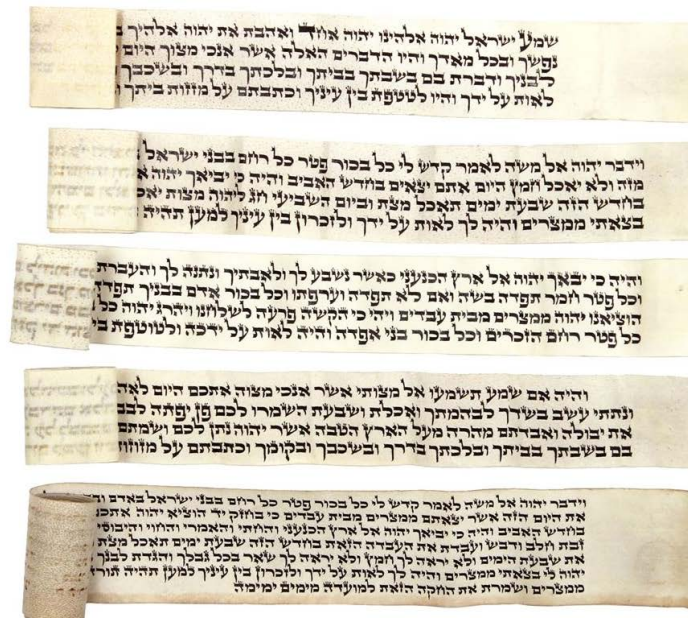 שמע ישראל יהוה אלהינו יהוה אחד ואהבת את יהוה אלהיך
נפשך ובכל מאדך והיו הדברים האלה אשר אנכי מצוך היום
לבניך ודברת בם בשבתך בביתך ובלכתך בדרך ובשכבך
לאות על ידך והיו לטטפת בין עיניך וכתבתם על מזזות ביתך
וידבר יהוה אל משה לאמר קדש לי כל בכור פטר כל רחם בבני ישראל
מזה ולא יאכל חמץ היום אתם יצאים בחדש האביב והיה כי יביאך יהוה
בחדש הזה שבעת ימים תאכל מצת וביום השביעי חג ליהוה מצות
בצאתי ממצרים והיה לך לאות על ידך ולזכרון בין עיניך למען תהיה
והיה כי יבאך יהוה אל ארץ הכנעני כאשר נשבע לך ולאבתיך ונתנה לך והעברת
וכל פטר חמר תפדה בשה ואם לא תפדה וערפתו וכל בכור אדם בבניך תפדה
הוציאנו יהוה ממצרים מבית עבדים ויהי כי הקשה פרעה לשלחנו ויהרג יהוה כל
כל פטר רחם הזכרים וכל בכור בני אפדה והיה לאות על ידכה ולטוטפת
והיה אם שמע תשמעו אל מצותי אשר אנכי מצוה אתכם היום
ונתתי עשב בשדך לבהמתך ואכלת ושבעת השמרו לכם פן יפתה
את יבולה ואבדתם מהרה מעל הארץ הטבה אשר יהוה נתן לכם ושמתם
בם בשבתך בביתך ובלכתך בדרך ובשכבך ובקומך וכתבתם על מזוזות
וידבר יהוה אל משה לאמר קדש לי כל בכור פטר כל רחם בבני ישראל באדם
את היום הזה אשר יצאתם ממצרים מבית עבדים כי בחזק יד הוציא יהוה אתכם
בחדש האביב והיה כי יביאך יהוה אל ארץ הכנעני והחתי והאמרי והחוי והיבוסי
זבת חלב ודבש ועבדת את העבדה הזאת בחדש הזה שבעת ימים תאכל מצת
את שבעת הימים ולא יראה לך חמץ ולא יראה לך שאר בכל גבלך והגדת לבנך
יהוה לי בצאתי ממצרים והיה לך לאות על ידך ולזכרון בין עיניך למען תהיה תורת
ממצרים ושמרת את החקה הזאת למועדה מימים ימימה